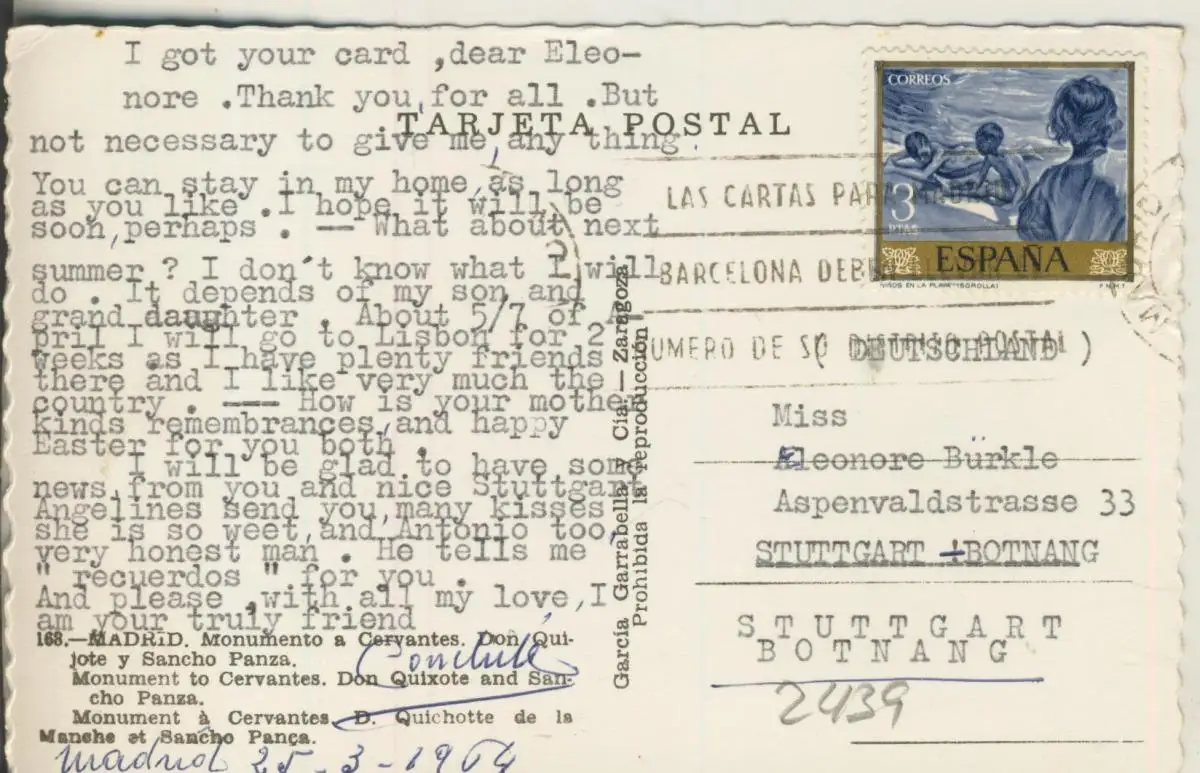 I got your card ,dear Eleo-
nore .Thank you,for all .But
not necessary to give me,any thing.
You can stay in my home,as long
as you like .I hope it will be
soon,perhaps . -- What about next
summer ? I don´t know what I will
do . It depends of my son and
grand daughter . About 5/7 of A-
pril I will go to Lisbon for 2
weeks as I have plenty friends
there and I like very much the
country . --- How is your mother
kinds remembrances,and happy
Easter for you both .
I will be glad to have some
news,from you and nice Stuttgart
Angelines send you,many kisses
she is so weet,and Antonio too,
very honest man . He tells me
" recuerdos " for you .
And please ,with all my love,I
am your truly friend
168.—MADRID. Monumento a Cervantes. Don Qui-
jote y Sancho Panza.
Monument to Cervantes. Don Quixote and San-
cho Panza.
Monument à Cervantes. D. Quichotte de la
Manche et Sancho Pança.
Madrid 25-3-1964
TARJETA POSTAL
García Garrabella y Cía.—Zaragoza
Prohibida la reproducción
CORREOS
3
PTAS
ESPAÑA
NIÑOS EN LA PLAYA (SOROLLA)
F.N.M.T.
LAS CARTAS PARA MADRID
BARCELONA
NUMERO DE SU DISTRITO POSTAL
( DEUTSCHLAND )
Miss
Eleonore Bürkle
Aspenvaldstrasse 33
STUTTGART - BOTNANG
STUTTGART
BOTNANG
2439